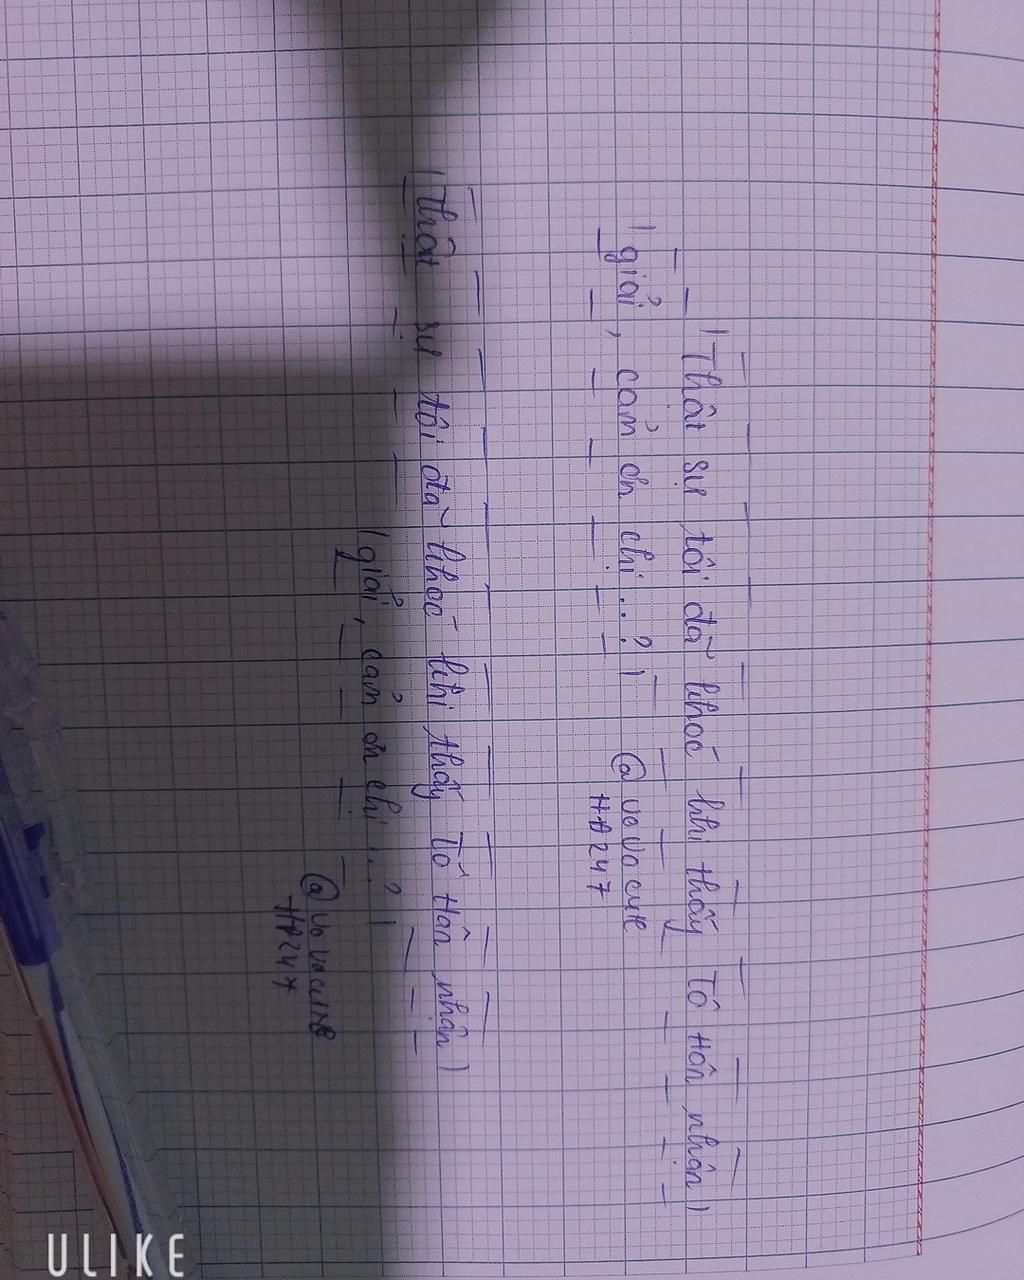 Thật sự tôi đã khóc khi thấy Tố Hân nhận
giải, cảm ơn chị..?
@vovocute
HB247
Thật sự tôi đã khóc khi thấy Tố Hân nhận
giải, cảm ơn chị..?
HB247
ULIKE